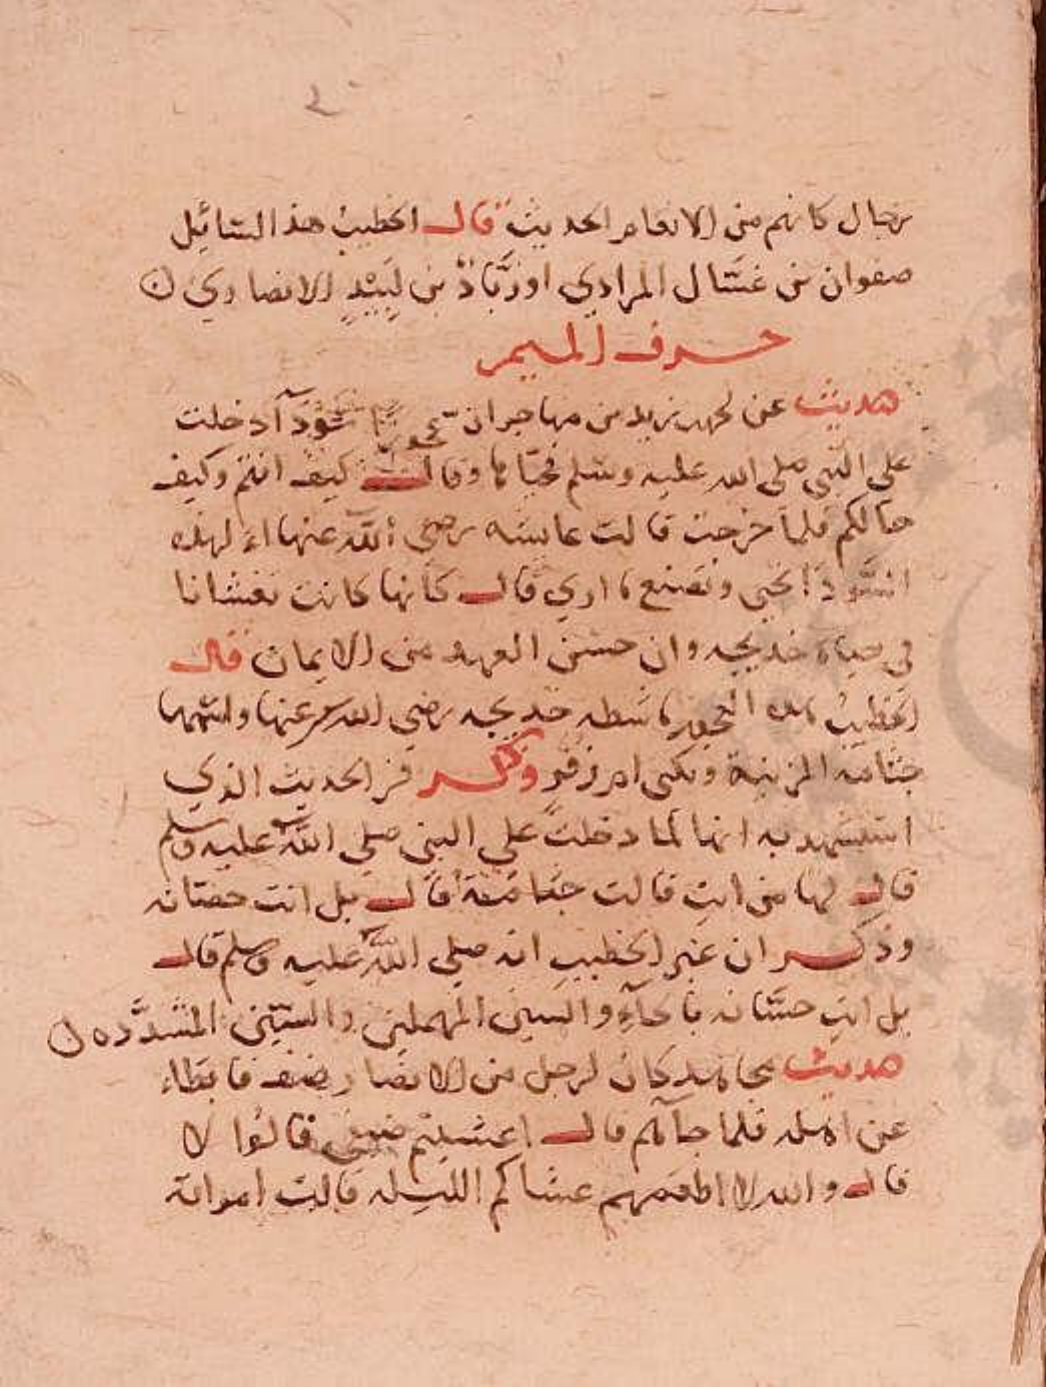 رجال كانهم من الانعام الحديث قال الخطيب هذا السائل
صفوان بن عسال المرادي او زياد بن لبيد الانصاري
حرف الميم
حديث عن محمد بن زيد بن مهاجر ان عجوزا سودآ دخلت
علي النبي صلى الله عليه وسلم فحياها وقال كيف انتم وكيف
حالكم فلما خرجت قالت عايشه رضي الله عنها الهذه
السودا تحيي وتصنع ما اري قال كانها كانت تغشانا
في حياة خديجه وان حسن العهد من الايمان قال
الخطيب هذه العجوز ماشطه خديجه رضي الله عنها واسمها
جثامة المزنية وتكنى ام زفر وذكر في الحديث الذي
استشهد به انها لما دخلت علي النبي صلي الله عليه وسلم
قال لها من انت قالت جثامة قال بل انت حصانه
وذكر ان غير الخطيب انه صلي الله عليه وسلم قال
بل انت حسانه بالحآء والسين المهملتين والسين المشدده
حديث مجاهد كان لرجل من الانصار ضيف فابطاء
عن اهله فلما جآءهم قال اعشيتم ضيفي قالوا لا
قال والله لا اطعمهم عشاكم الليله قالت امراته